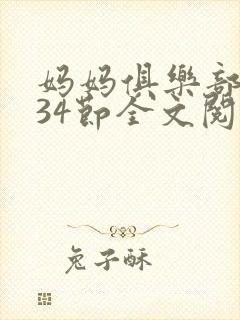 妈妈俱樂部
34節全文閱
兔子酥